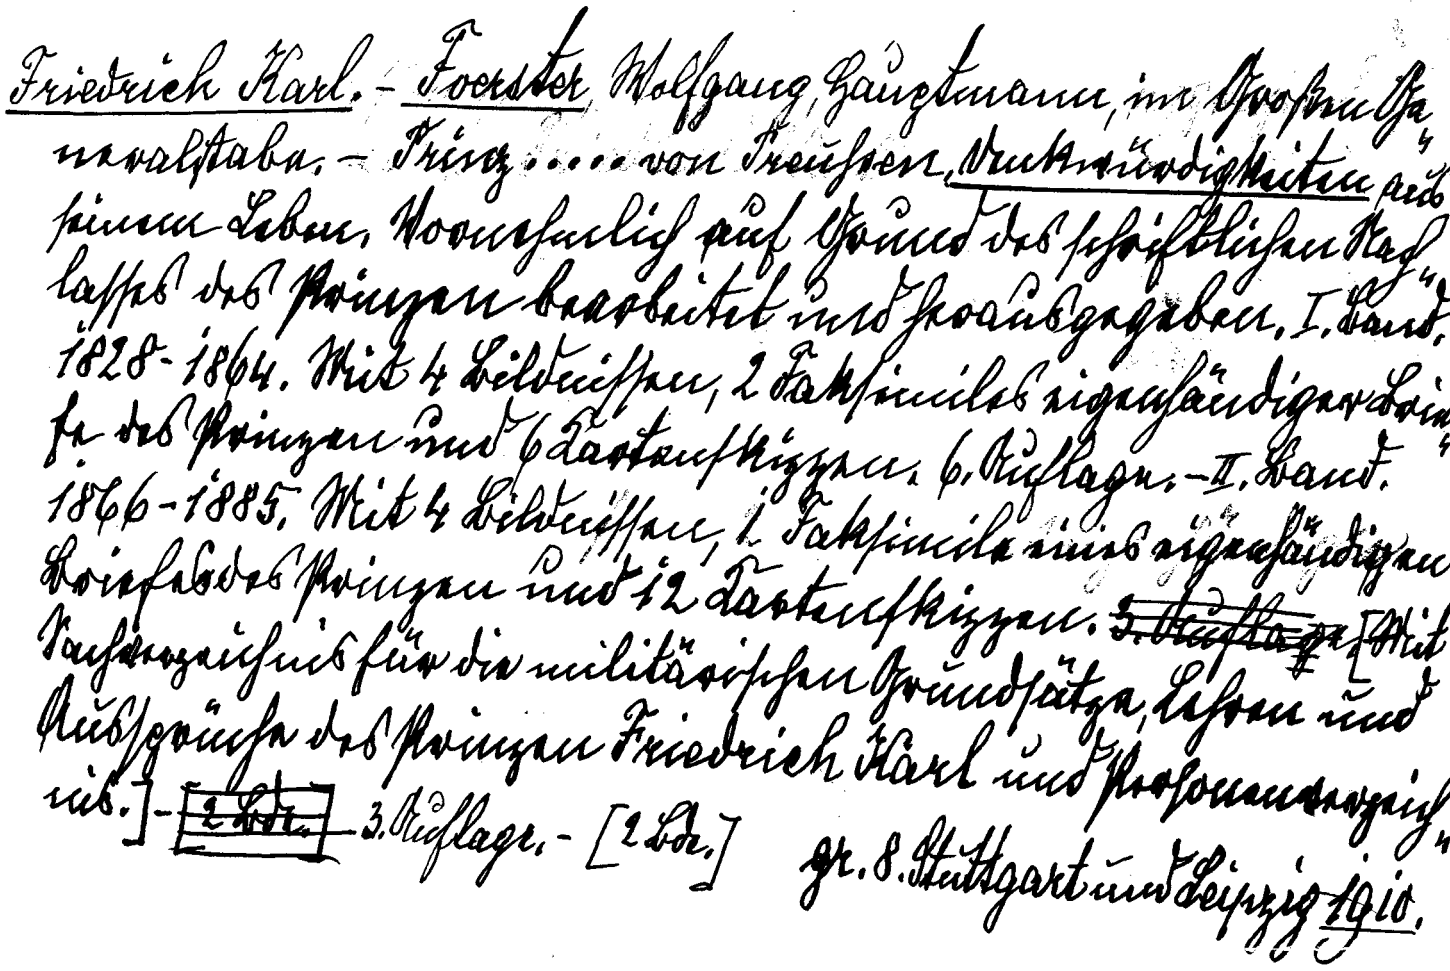 Friedrich Karl. - Foerster, Wolfgang, Hauptmann, im Großen Ge„
neralstabe. - Prinz ..... von Preußen, Denkwürdigkeiten aus
seinem Leben. Vornehmlich auf Grund des schriftlichen Nach„
lasses des Prinzen bearbeitet und herausgegeben. I. Band.
1828-1864. Mit 4 Bildnissen, 2 Faksimiles eigenhändiger Brie„
fe des Prinzen und 6 Kartenskizzen. 6. Auflage. - II. Band.
1866-1885. Mit 4 Bildnissen, 1 Faksimile eines eigenhändigen
Briefes des Prinzen und 12 Kartenskizzen. 3. Auflage. [Mit
Sachverzeichnis für die militärischen Grundsätze, Lehren und
Aussprüche des Prinzen Friedrich Karl und Personenverzeich„
nis.] - 2 Bde. 3. Auflage. - [2 Bde.]
gr. 8. Stuttgart und Leipzig 1910.